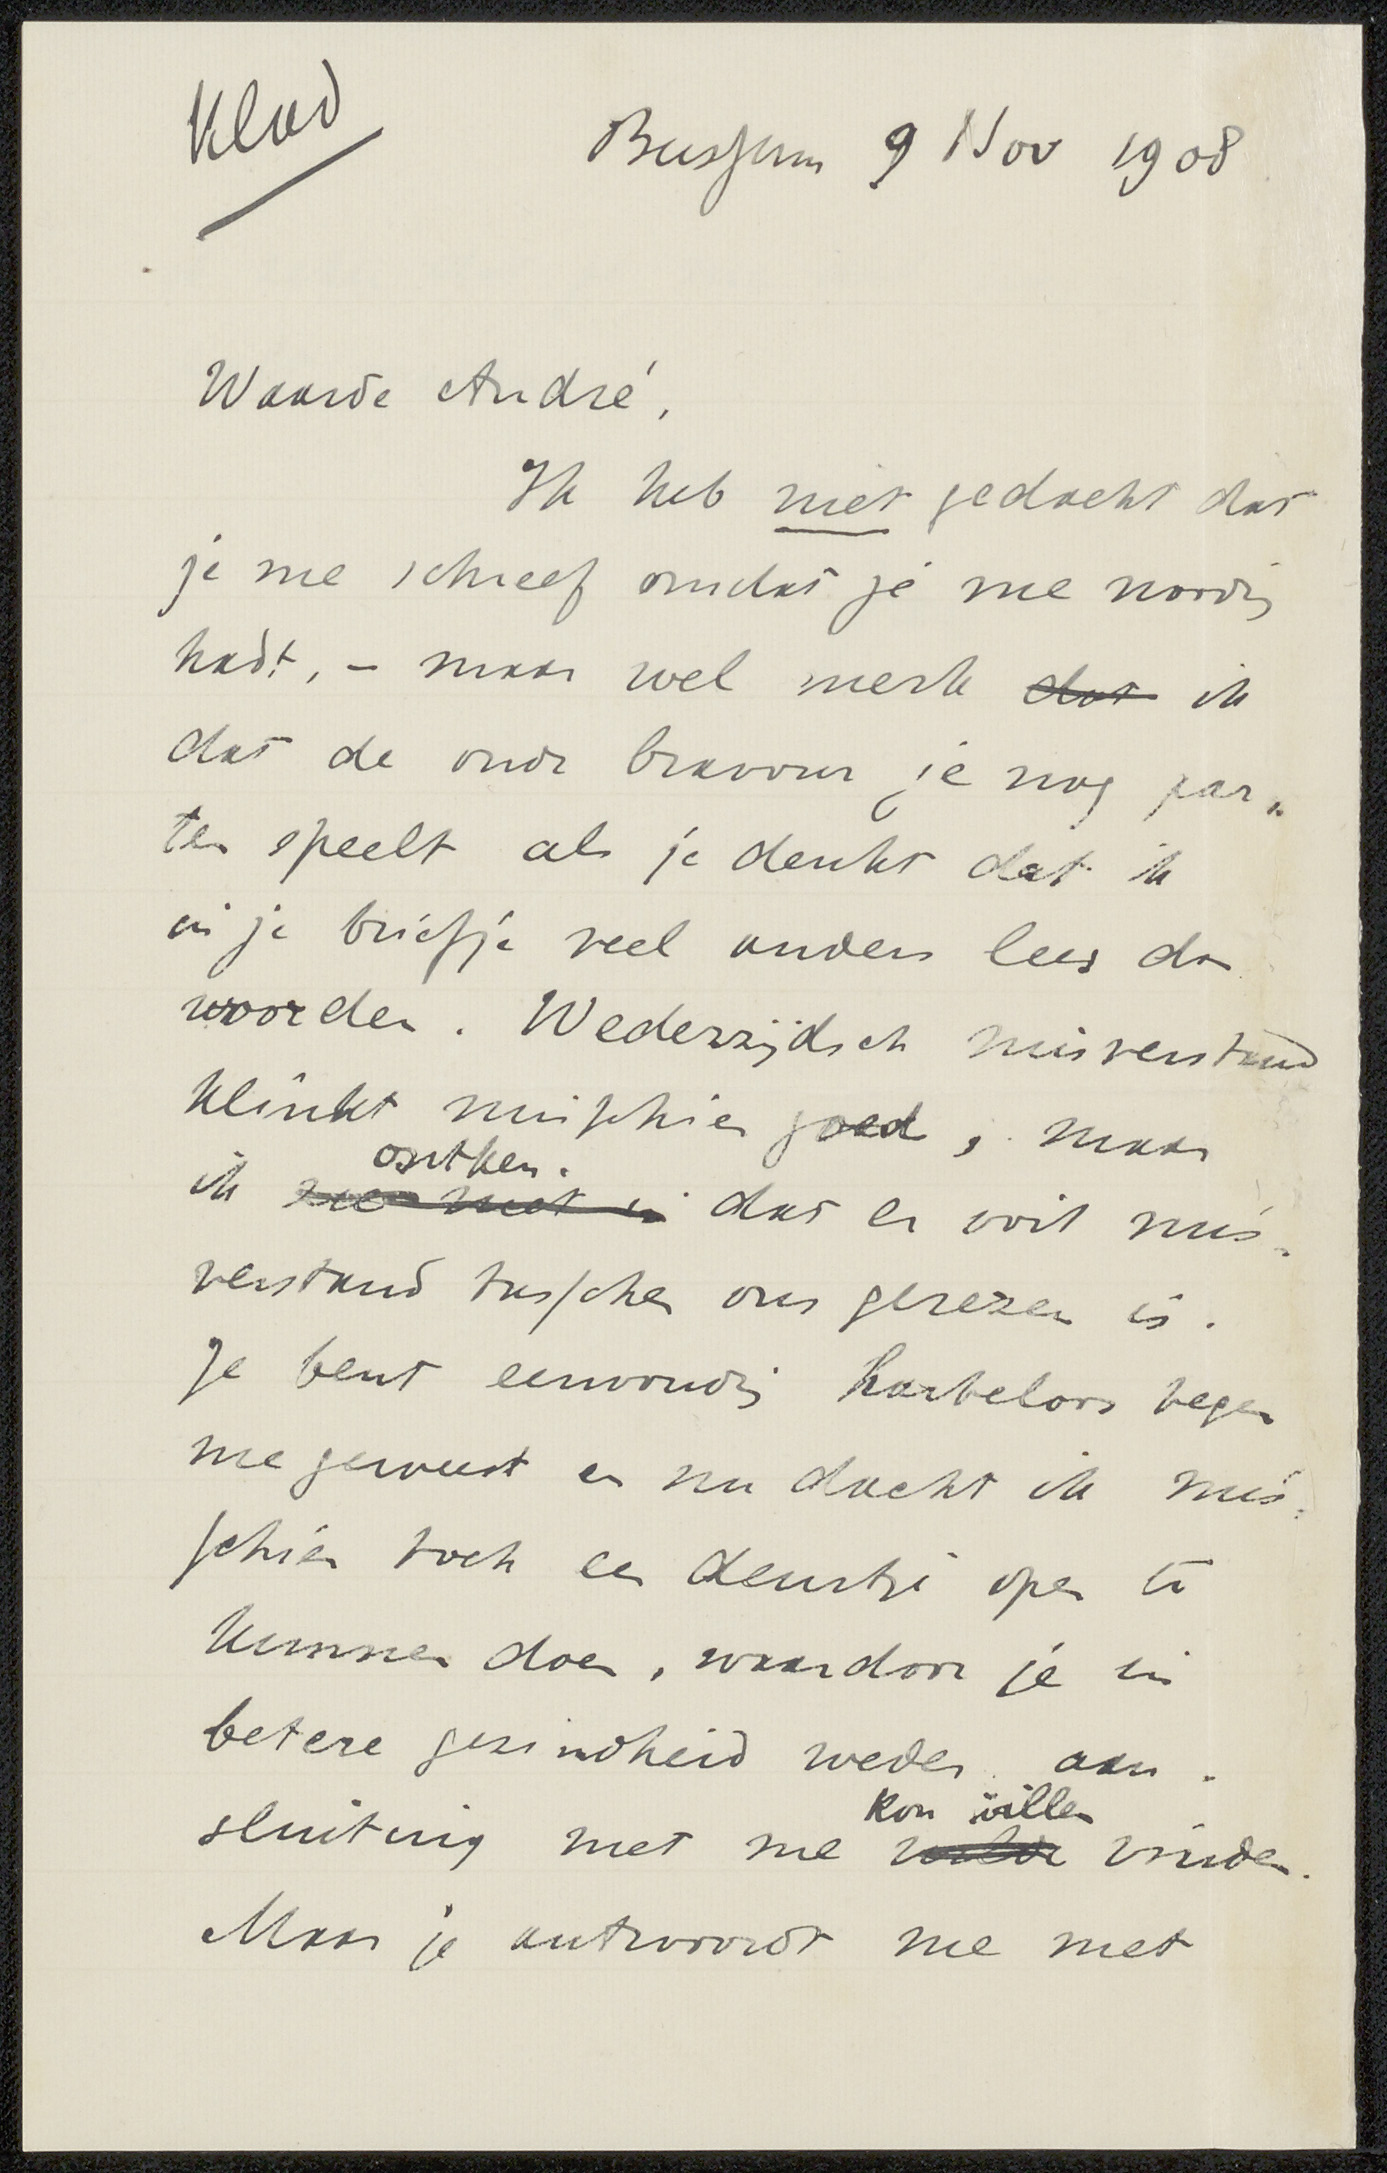 Klad
Bussum 9 Nov 1908
Waarde André,
Ik heb niet gedacht dat
je me schreef omdat je me noodig
hadt, - maar wel merk dat ik
dat de oude bravour je nog par-
ten speelt als je denkt dat ik
in je briefje veel anders lees dan
woorden. Wederzijdsch misverstand
klinkt misschien goed, maar
ontken
ik zie niet in dat er ooit mis-
verstand tusschen ons gerezen is.
Je bent eenvoudig harteloos tegen
me geweest en nu dacht ik mis-
schien toch een deurtje open te
kunnen doen, waardoor je in
betere gezindheid weder aan-
kon willen
sluiting met me wilde vinden.
Maar je antwoordt me met